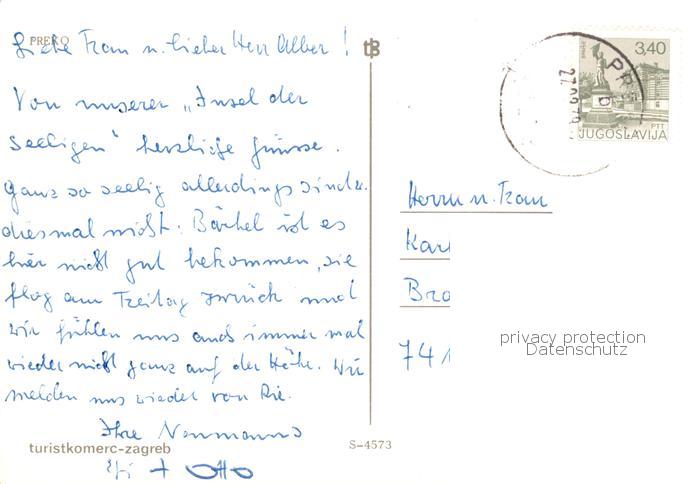 PREKO
Liebe Frau u. lieber Herr Alber !
Von unserer „Insel der
Seeligen" herzliche Grüsse.
Ganz so seelig allerdings sind's
diesmal nicht. Bärbel ist es
hier nicht gut bekommen, sie
flog am Freitag zurück und
wir fühlen uns auch immer mal
wieder nicht ganz auf der Höhe. Wir
melden uns wieder von
Ihre Neumanns
+ Otto
turistkomerc-zagreb
S-4573
tB
3,40
PTT
JUGOSLAVIJA
Herrn u. Frau
Kar
Bra
741
privacy protection
Datenschutz